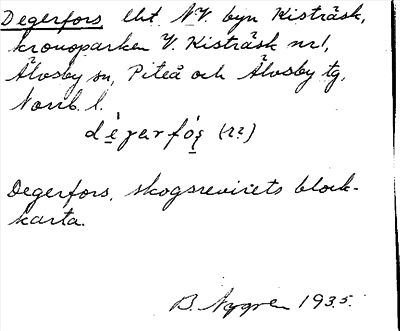 Degerfors lht NV. byn Kisträsk,
kronoparken V. Kisträsk nr 1,
Älvsby sn, Piteå och Älvsby tg,
Norrb. l.
Degerfors, skogsrevirets block-
karta.
B. Nygren 1935.